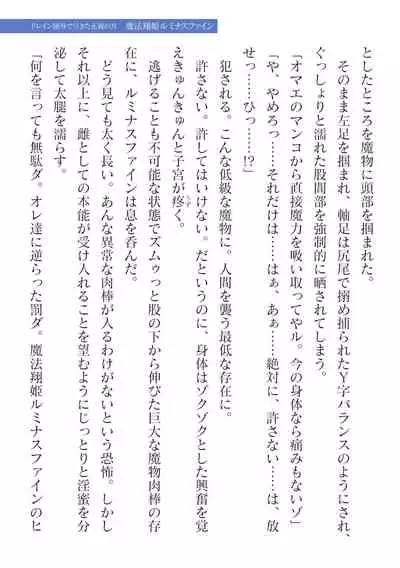 魔法翔姫ルミナスファイン
としたところを魔物に頭部を掴まれた。
そのまま左足を掴まれ、軸足は尻尾で搦め捕られたＹ字バランスのようにされ、
ぐっしょりと濡れた股間部を強制的に晒されてしまう。
「オマエのマンコから直接魔力を吸い取ってやル。今の身体なら痛みもないゾ」
「や、やめろっ……それだけは……はぁ、あぁ……絶対に、許さない……は、放
せっ……ひっ……!?」
犯される。こんな低級な魔物に。人間を襲う最低な存在に。
許さない。許してはいけない。だというのに、身体はゾクゾクとした興奮を覚
えきゅんきゅんと子宮が疼く。
逃げることも不可能な状態でズムゥっと股の下から伸びた巨大な魔物肉棒の存
在に、ルミナスファインは息を呑んだ。
どう見ても太く長い。あんな異常な肉棒が入るわけがないという恐怖。しかし
それ以上に、雌としての本能が受け入れることを望むようにじっとりと淫蜜を分
泌して太腿を濡らす。
「何を言っても無駄ダ。オレ達に逆らった罰ダ。魔法翔姫ルミナスファインのヒ